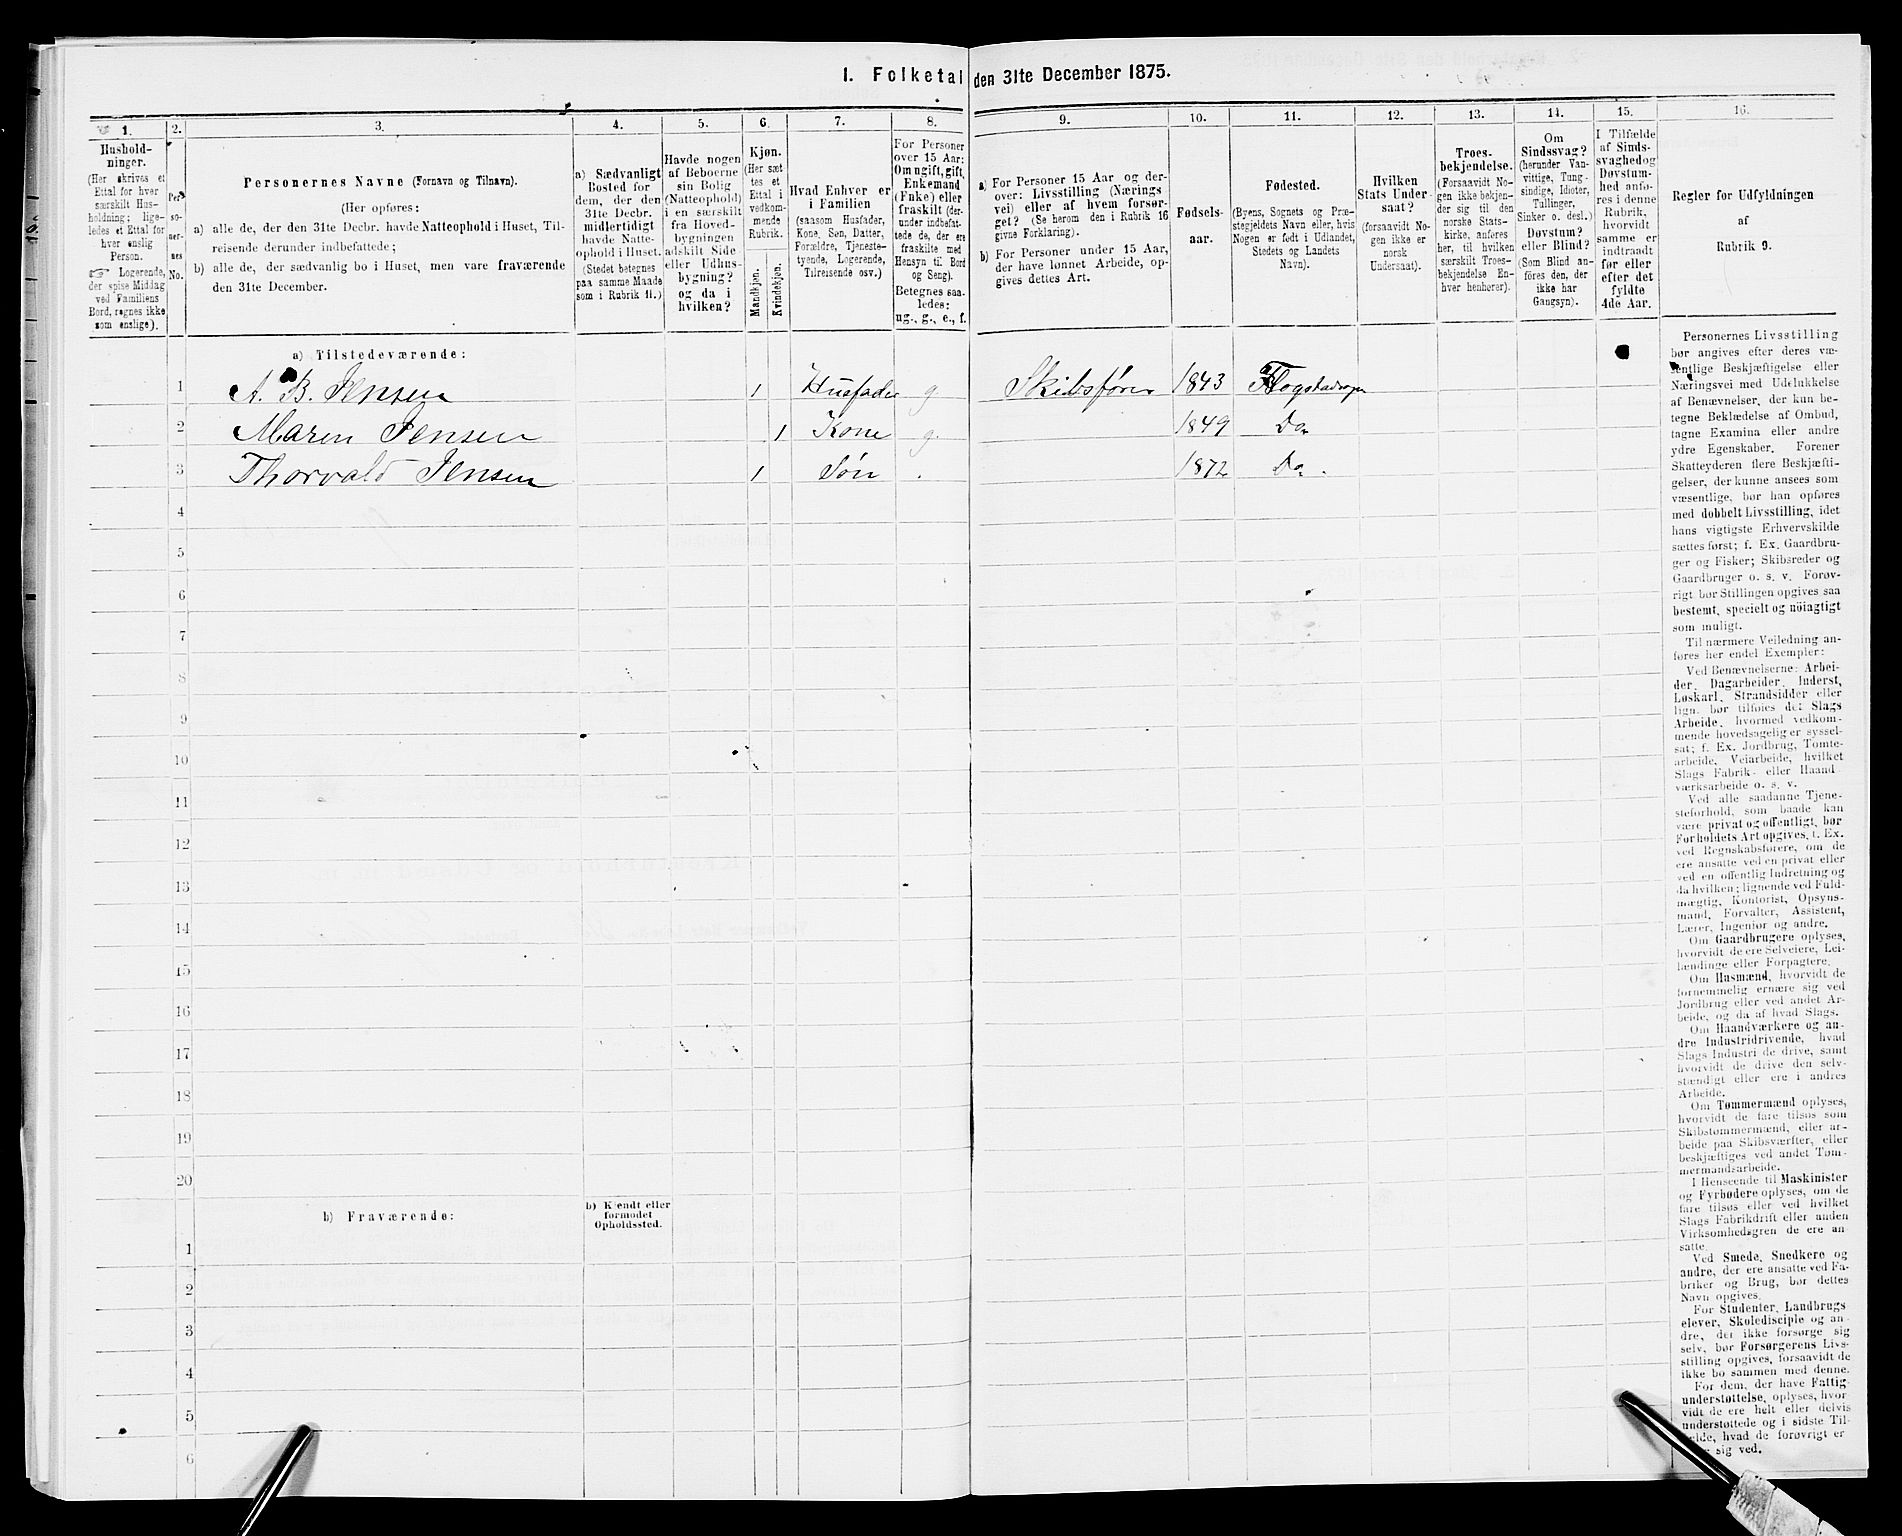 1. Folketal den 31te December 1875.
1.
2.
3.
4.
5.
6.
7.
8.
9.
10.
11.
12.
13.
14.
15.
16.
Hushold-
ninger.
(Her skrives et
Ettal for hver
særskilt Hus-
holdning; lige-
ledes et Ettal for
hver enslig
Person.
☞ Logerende,
der spise Middag
ved Familiens
Bord, regnes ikke
som enslige).
Per-
so-
ner-
nes
No.
Personernes Navne (Fornavn og Tilnavn).
(Her opføres:
a) alle de, der den 31te Decbr. havde Natteophold i Huset, Til-
reisende derunder indbefattede;
b) alle de, der sædvanlig bo i Huset, men vare fraværende
den 31te December.
a) Sædvanligt
Bosted for
dem, der den
31te Decbr.
midlertidigt
havde Natte-
ophold i Huset.
(Stedet betegnes
paa samme Maade
som i Rubrik 11.)
Havde nogen
af Beboerne
sin Bolig
(Natteophold)
i en særskilt
fra Hoved-
bygningen
adskilt Side
eller Udhus-
bygning?
og da i
hvilken?
Kjøn.
(Her sæt
tes et
Ettal i
vedkom-
mende
Rubrik.
Mandkjøn.
Kvindekjøn.
Hvad Enhver er
i Familien
(saasom Husfader,
Kone, Søn, Datter,
Forældre, Tjeneste-
tyende, Logerende,
Tilreisende osv.)
For Personer
over 15 Aar:
Om ugift, gift,
Enkemand
(Enke) eller
fraskilt (der-
under indbefat-
tede de, der ere
fraskilte med
Hensyn til Bord
og Seng).
Betegnes saa-
ledes:
ug., g., e., f.
a) For Personer 15 Aar og der-
over: Livsstilling (Nærings
vei) eller af hvem forsør-
get? (Se herom den i Rubrik 16
givne Forklaring).
b) For Personer under 15 Aar,
der have lønnet Arbeide, op-
gives dettes Art.
Fødsels-
aar.
Fødested.
(Byens, Sognets og Præ-
stegjeldets Navn eller, hvis
Nogen er født i Udlandet,
Stedets og Landets
Navn).
Hvilken
Stats Under-
saat?
(forsaavidt No-
gen ikke er
norsk
Undersaat).
Troes-
bekjendelse.
(Forsaavidt No-
gen ikke bekjen-
der sig til den
norske Stats-
kirke, anføres
her, til hvilken
særskilt Troes-
bekjendelse En-
hver henhører).
Om
Sindssvag?
(herunder Van-
vittige, Tung-
sindige, Idioter,
Tullinger,
Sinker o. desl.)
Døvstum?
eller Blind?
(Som Blind an-
føres den, der
ikke har
Gangsyn).
I Tilfælde
af Sinds-
svaghed og
Døvstum-
hed anfø-
res i denne
Rubrik,
hvorvidt
samme er
indtraadt
før eller
efter det
fyldte
4de Aar.
Regler for Udfyldningen
af
Rubrik 9.
a) Tilstedeværende:
1 A. B. Jensen 1 Husfader g Skibsfører 1843
2 Maren Jensen 1 Kone g. 1849 Do
3 Thorvald Jensen 1 Søn 1872 Do.
4
5
6
7
8
9
10
11
12
13
14
15
16
17
18
19
20
b) Fraværende:
b) Kjendt eller
formodet
Opholdssted.
1
2
3
4
5
6
Personernes Livsstilling
bør angives efter deres væ-
sentlige Beskjæftigelse eller
Næringsvei med Udelukkelse
af Benævnelser, der kun be-
tegne Beklædelse af Ombud,
tagne Examina eller andre
ydre Egenskaber. Forener
Skatteyderen flere Beskjæfti-
gelser, der kunne ansees som
væsentlige, bør han opføres
med dobbelt Livsstilling, idet
hans vigtigste Erhvervskilde
sættes først; f. Ex. Gaardbru-
ger og Fisker; Skibsreder og
Gaardbruger o. s. v. Forøv-
rigt bør Stillingen opgives saa
bestemt, specielt og nöiagtigt
som muligt.
Til nærmere Veiledning an-
føres her endel Exempler:
Ved Benævnelserne: Arbei-
der, Dagarbeider, Inderst,
Løskarl, Strandsidder eller
lign. bør tilføies det Slags
Arbeide, hvormed vedkom-
mende hovedsagelig er syssel-
sat; f. Ex. Jordbrug, Tomte-
arbeide, Veiarbeide, hvilket
Slags Fabrik- eller Haand
værksarbeide o. s. v.
Ved alle saadanne Tjene-
steforhold, som baade kan
være privat og offentligt, bør
Forholdets Art opgives, f. Ex.
ved Regnskabsførere, om de
ere ansatte ved en privat eller
ved en offentlig Indretning og
da hvilken; lignende ved Fuld-
mægtig, Kontorist, Opsyns-
mand, Forvalter, Assistent,
Lærer, Ingeniør og andre.
Om Gaardbrugere oplyses,
hvorvidt de ere Selveiere, Lei-
lændinge eller Forpagtere.
Om Husmænd, hvorvidt de
fornemmelig ernære sig ved
Jordbrug eller ved andet Ar-
beide, og da af hvad Slags.
Om Haandværkere og an-
dre Industridrivende, hvad
Slags Industri de drive, samt
hvorvidt de drive den selv-
stændigt eller ere i andres
Arbeide.
Om Tømmermænd oplyses,
hvorvidt de fare tilsøs som
Skibstømmermænd, eller ar-
beide paa Skibsværfter, eller
beskjæftiges ved andet Tøm-
mermandsarbeide.
I Henseende til Maskinister
og Fyrbødere oplyses, om de
fare tilsøs eller ved hvilket
Slags Fabrikdrift eller anden
Virksomhedsgren de ere an
satte.
Ved Smede, Snedkere og
andre, der ere ansatte ved Fa-
briker og Brug, bør dettes
Navn opgives.
For Studenter, Landbrugs
elever, Skoledisciple og an
dre, der ikke forsørge sig
selv, bør Forsørgerens Livs-
stilling opgives, forsaavidt de
ikke bo sammen med denne.
For dem, der have Fattig-
understøttelse, oplyses, hvor
vidt de ere helt eller delvis
understøttede og i sidste Til-
fælde, hvad de forøvrigt er
sig ved.